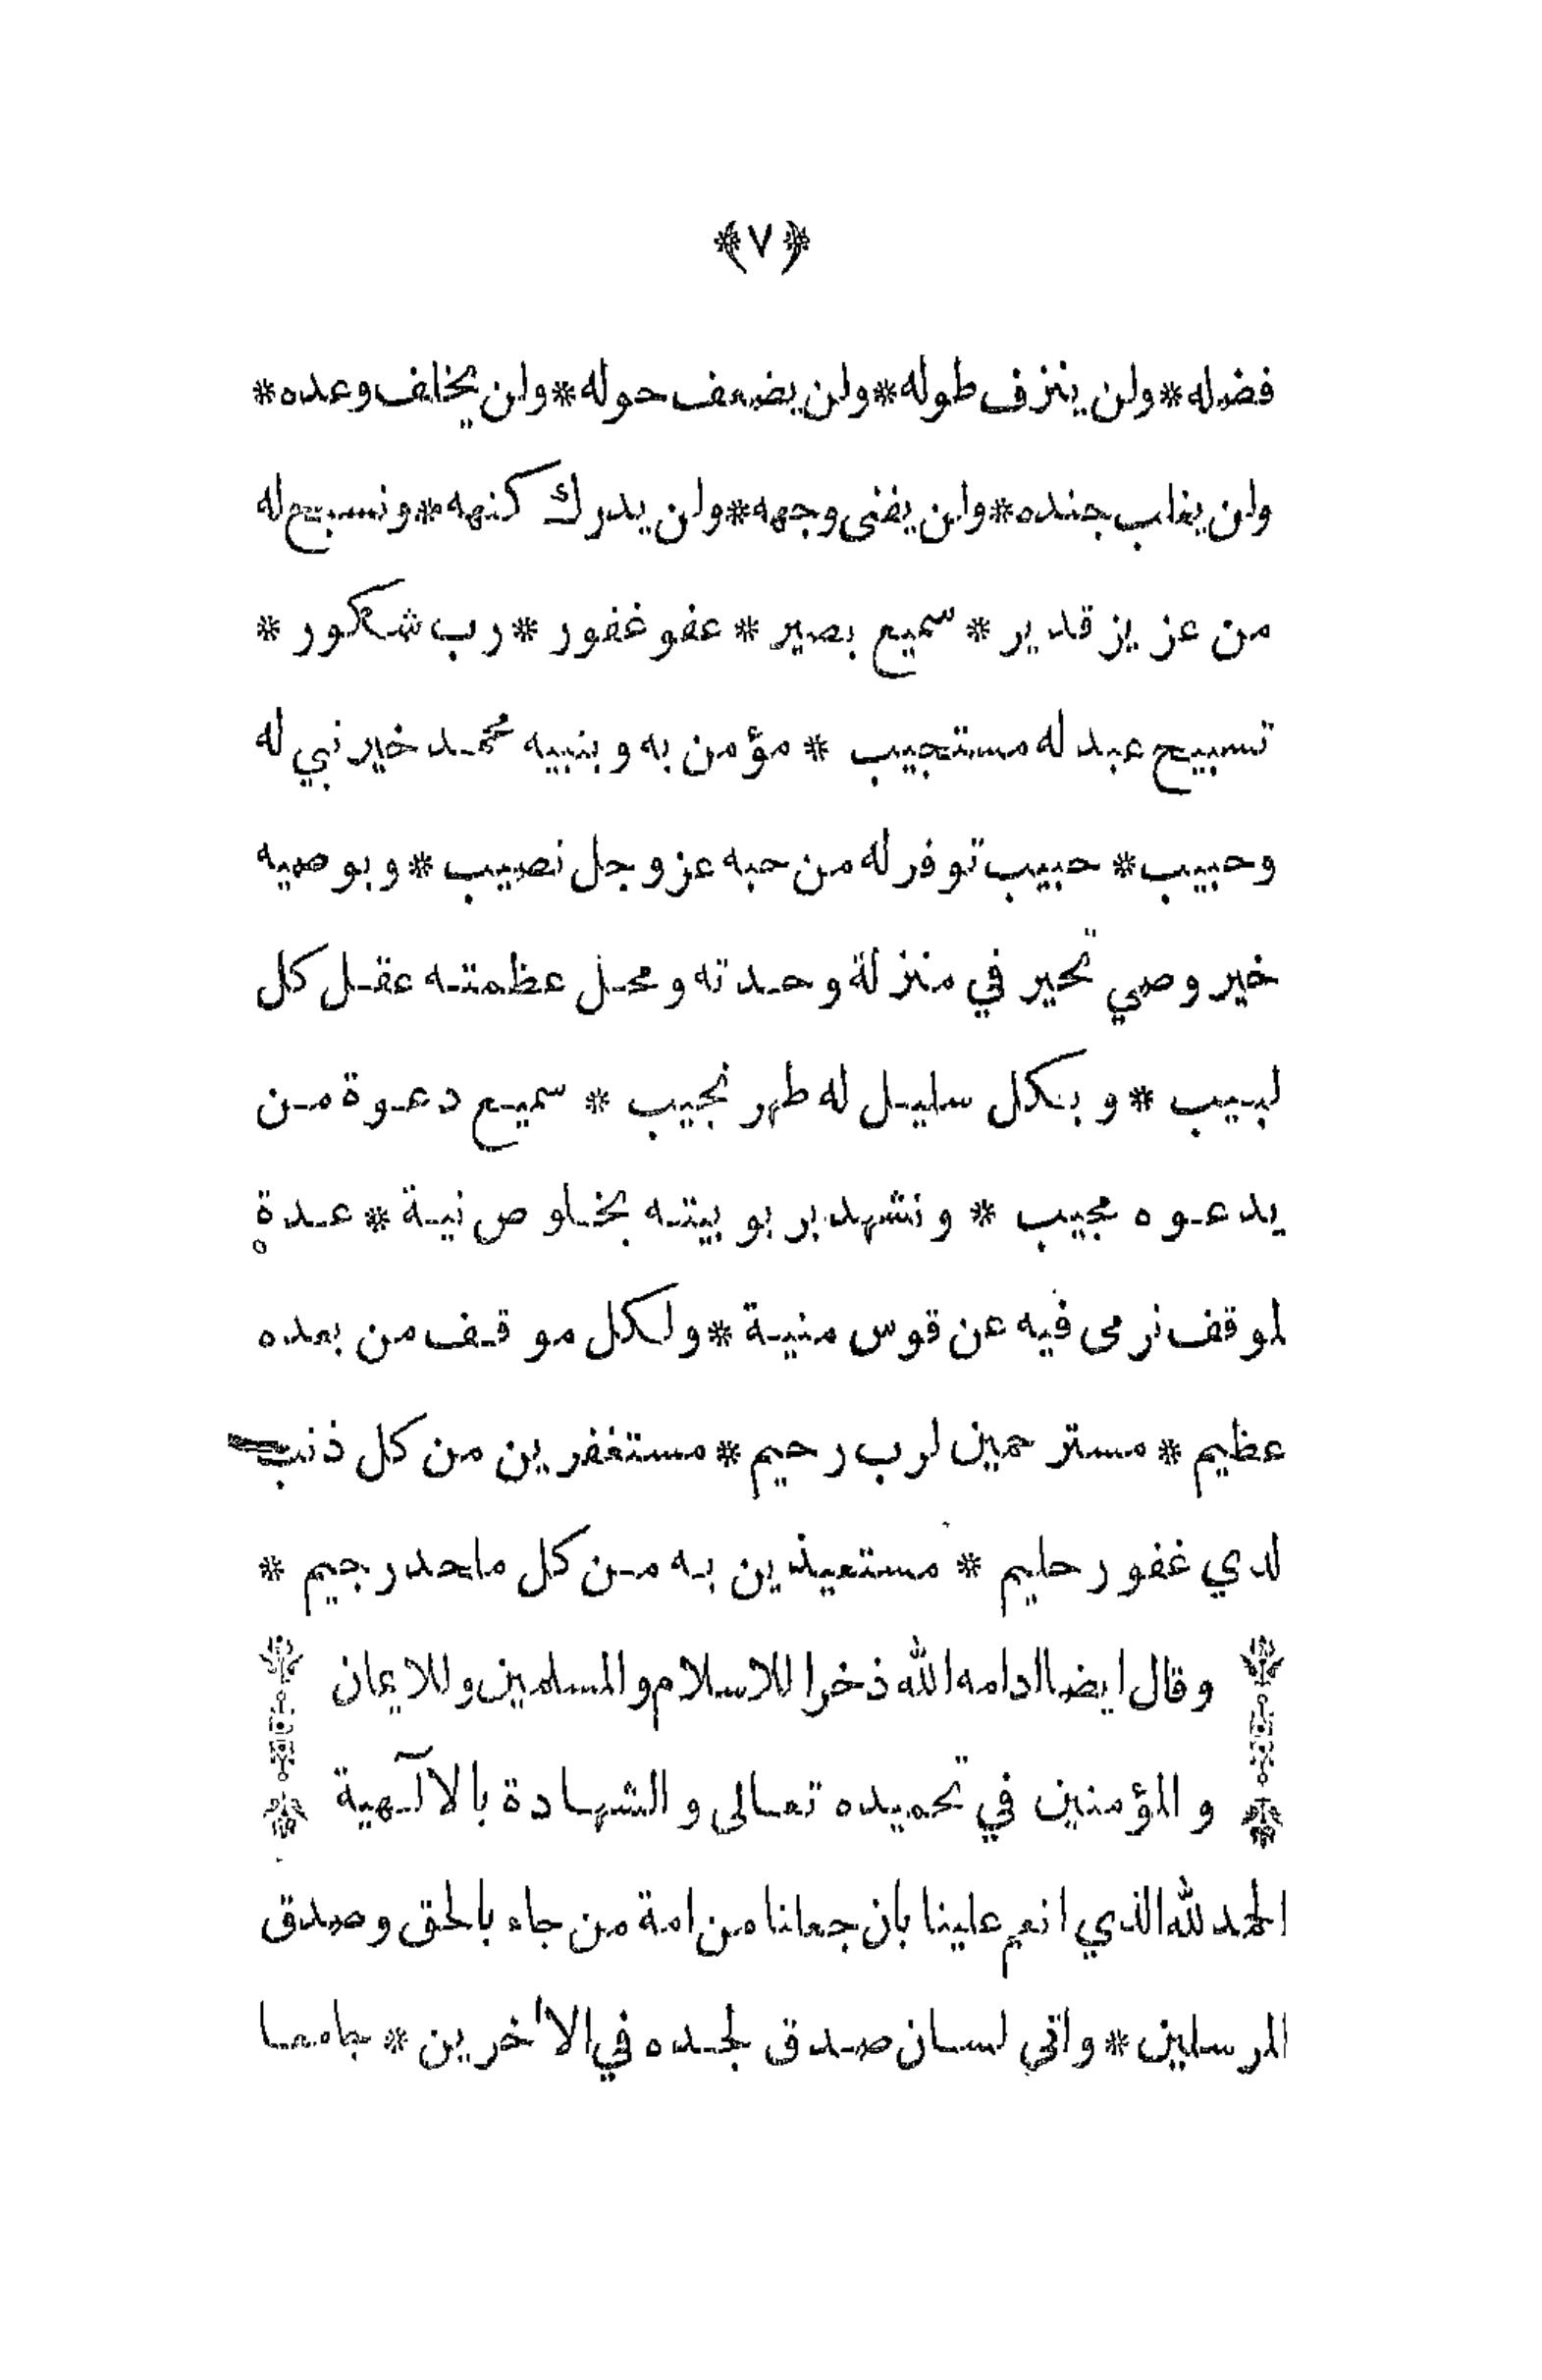 ﴿٧﴾
فضله * ولن ينزف طوله * ولن يضعف حوله * ولن يخلف وعده *
ولن يغلب جنده * ولن يفنى وجهه * ولن يدرك كنهه * ونسبح له
من عزيز قدير * سميع بصير * عفو غفور * رب شكور *
تسبيح عبد له مستجيب * مؤمن به وبنبيه محمد خير نبي له
وحبيب * حبيب توفر له من حبه عز وجل نصيب * وبوصيه
خير وصي تحير في منزلة وحدته ومحل عظمته عقل كل
لبيب * وبكل سليل له طهر نجيب * سميع دعوة من
يدعوه مجيب * ونشهد بربوبيته بخلوص نية * عدة
لموقف نرمى فيه عن قوس منية * ولكل موقف من بعده
عظيم * مسترحمين لرب رحيم * مستغفرين من كل ذنب
لدي غفور حليم * مستعيذين به من كل ملحد رجيم *
وقال ايضا ادامه الله ذخرا للاسلام والمسلمين وللايمان
والمؤمنين في تحميده تعالى والشهادة بالالٓهية
الحمد لله الذي انعم علينا بان جعلنا من امة من جاء بالحق وصدق
المرسلين * واتي لسان صدق لجده في الأخرين * جامعا